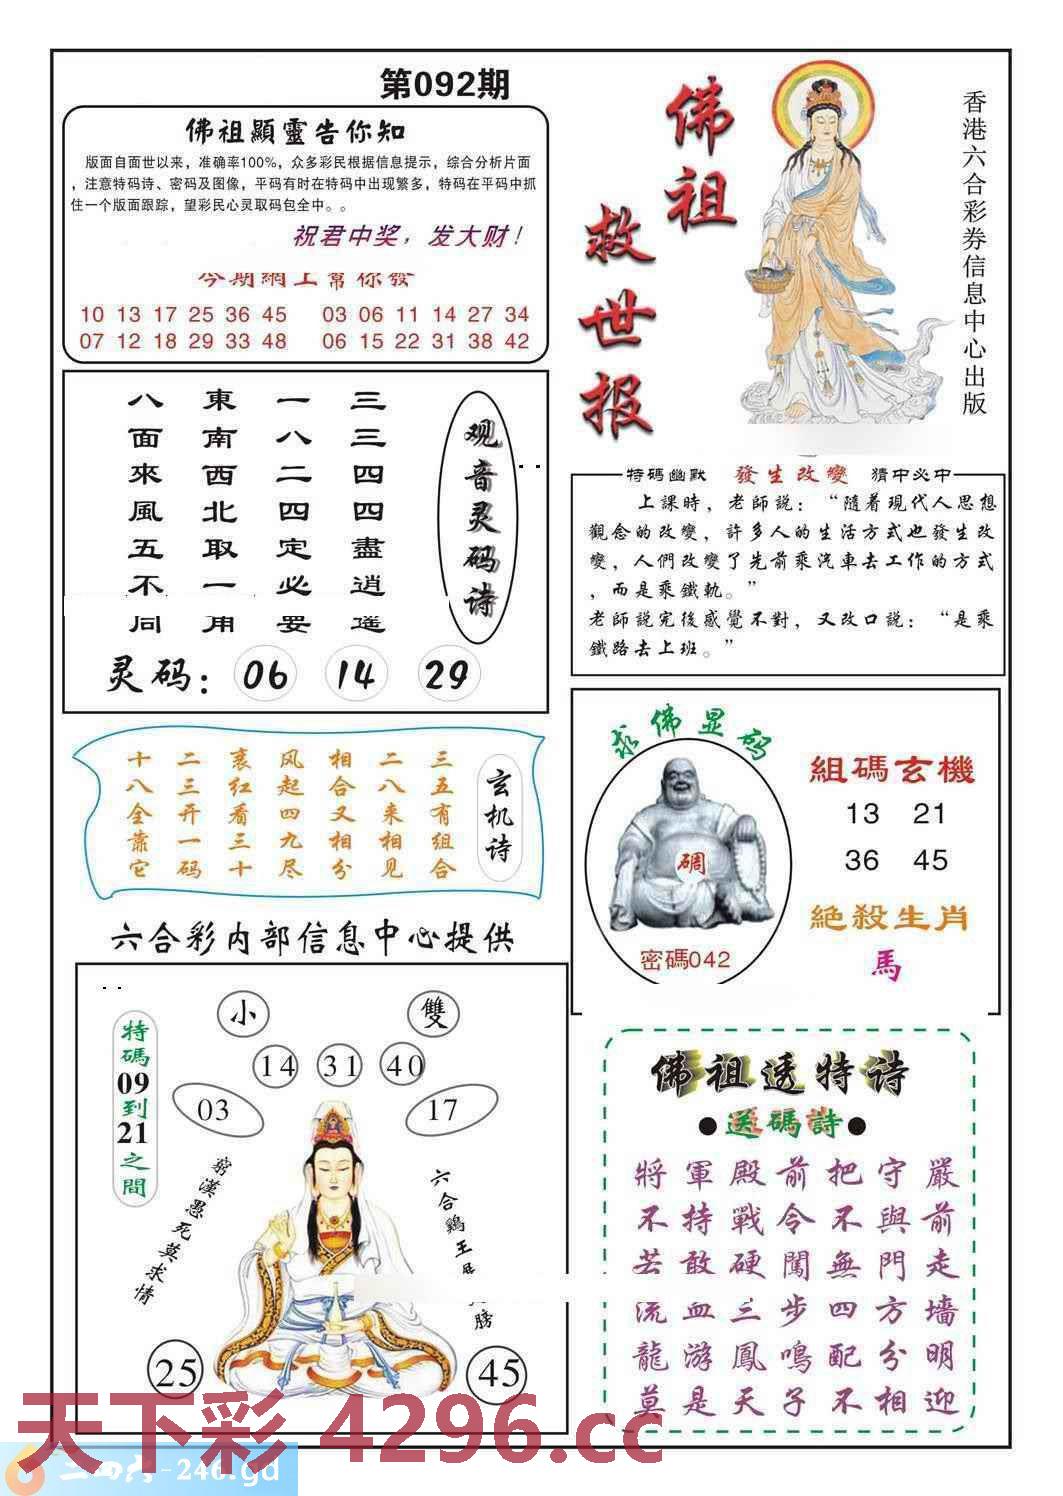 第092期
佛祖顯靈告你知
版面自面世以来，准确率100%，众多彩民根据信息提示，综合分析片面
，注意特码诗、密码及图像，平码有时在特码中出现繁多，特码在平码中抓
住一个版面跟踪，望彩民心灵取码包全中。。
祝君中奖，发大财！
今期網上幫你發
10 13 17 25 36 45 03 06 11 14 27 34
07 12 18 29 33 48 06 15 22 31 38 42
佛祖
救世报
香港六合彩券信息中心出版
观音灵码诗
三三四四盡逍遥
一八二四定必要
東南西北取一用
八面來風五不同
灵码：06 14 29
特碼幽默 發生改變 猜中必中
上課時，老師說：“隨着現代人思想
觀念的改變，許多人的生活方式也發生改
變，人們改變了先前乘汽車去工作的方式
，而是乘鐵軌。”
老師說完後感覺不對，又改口說：“是乘
鐵路去上班。”
玄机诗
三五有组合
二八来相见
相合又相分
风起四九尽
裹红看三十
二三开一码
十八全靠它
求佛显码
碉
密碼042
組碼玄機
13 21
36 45
絕殺生肖
馬
六合彩内部信息中心提供
特碼09到21之間
小 雙
14 31 40
03 17
窮漢愚死莫求情
六合鷄王
膀
25 45
佛祖透特诗
●送碼詩●
將軍殿前把守嚴
不持戰令不與前
若敢硬闖無門走
流血三步四方墙
龍游鳳鳴配分明
莫是天子不相迎
天下彩 4296.cc
二四六-246.gd